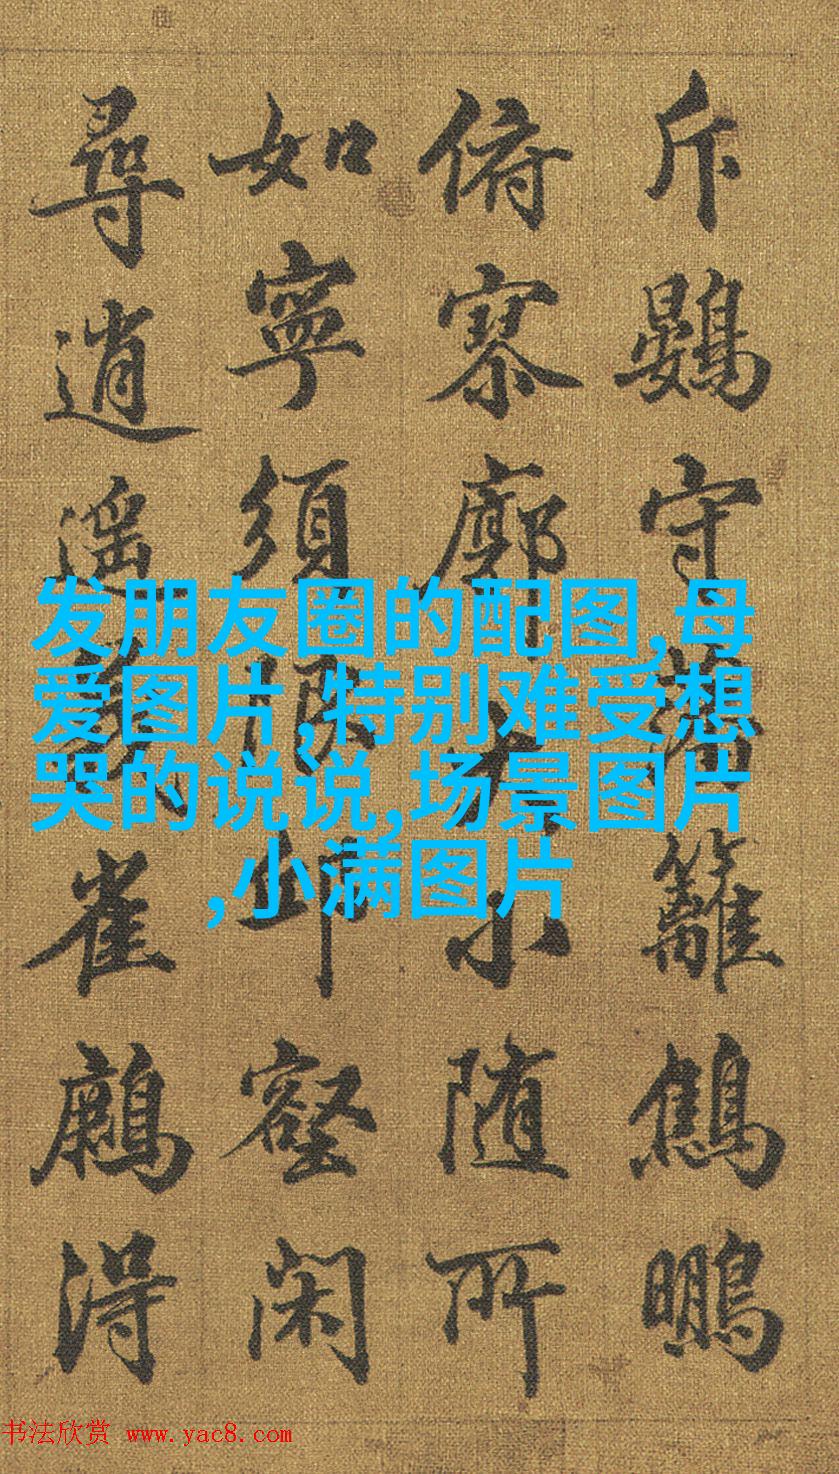 斥鷃守藩籬鷦鵬
俯寥廓大小随所
如寧須限邱壑闲
尋逍遥雀得
发朋友圈的配图,母
爱图片,特别难受想
哭的说说,场景图片
,小满图片
书法欣赏 www.yac8.com